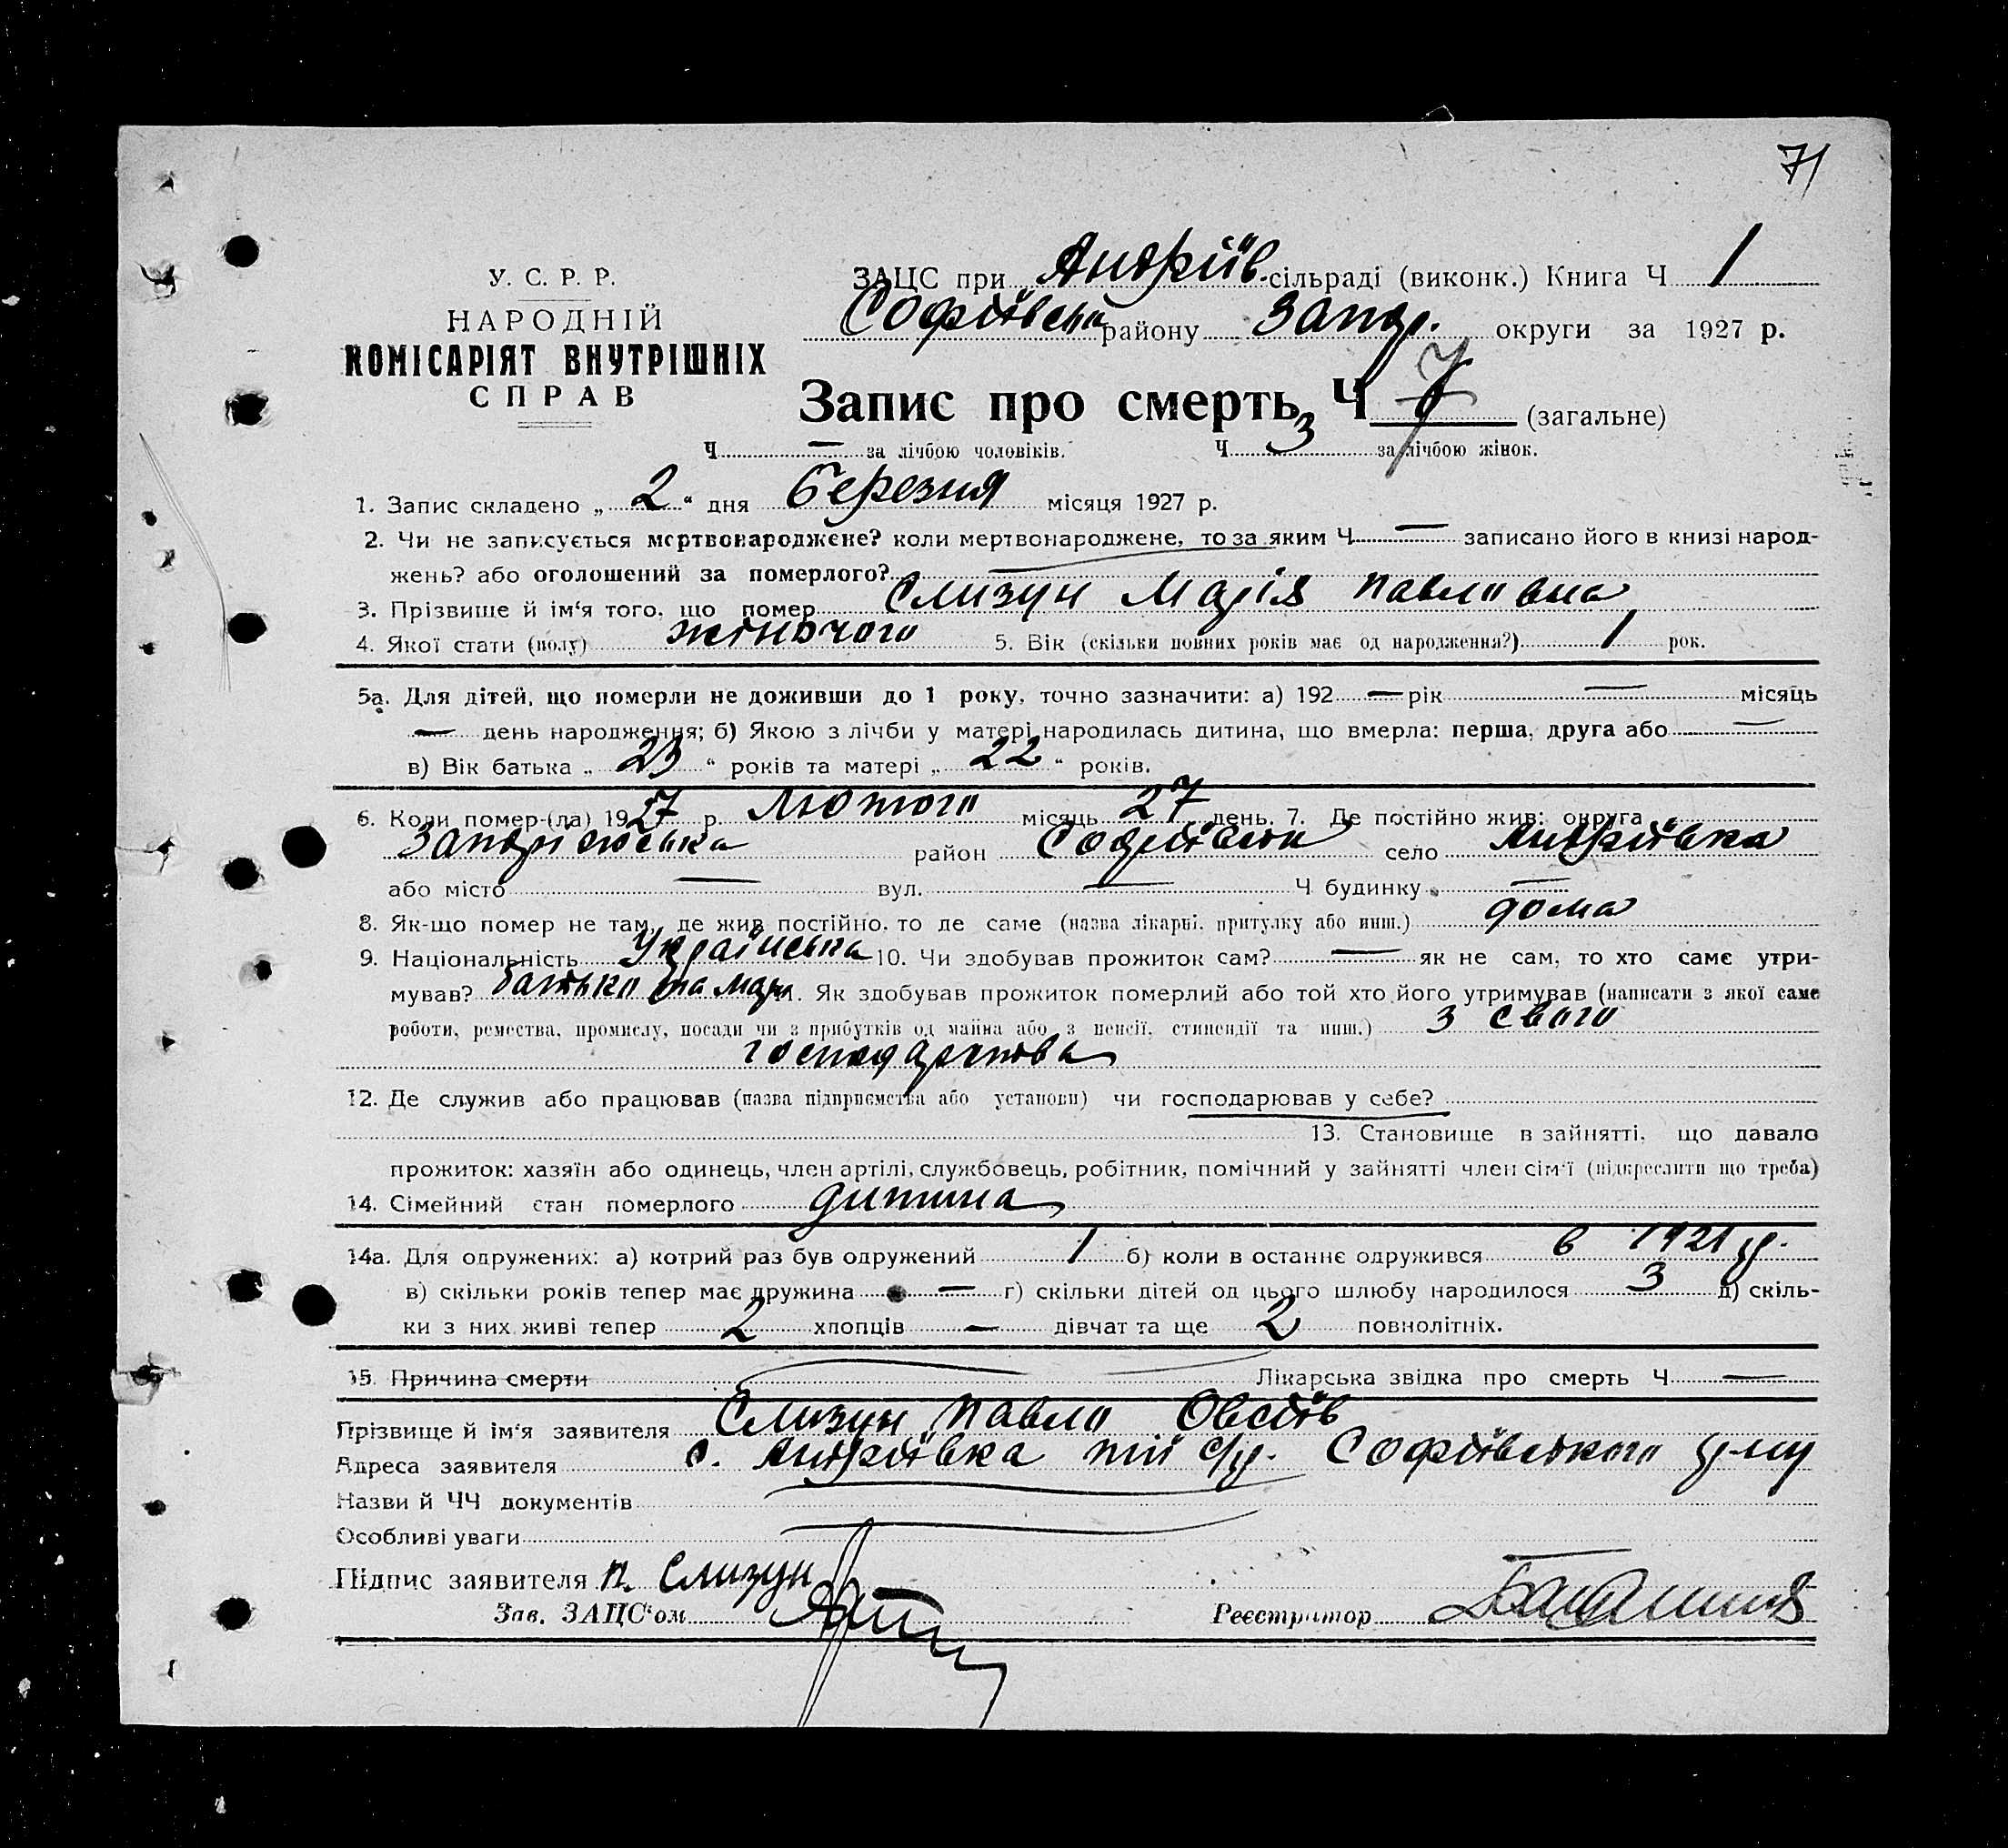 71
У. С. Р. Р.
НАРОДНІЙ
КОМІСАРІЯТ ВНУТРІШНІХ
СПРАВ
ЗАЦС при Андріїв. сільраді (виконк.) Книга Ч 1
Софіївськ району Запор. округи за 1927 р.
Запис про смерть Ч 7 (загальне)
Ч. — за лічбою чоловіків. Ч. 3 за лічбою жінок.
1. Запис складено „ 2 “ дня Березня місяця 1927 р.
2. Чи не записується мертвонароджене? коли мертвонароджене, то за яким Ч. — записано його в книзі народ-
жень? або оголошений за померлого?
3. Прізвище й ім'я того, що помер Слизун Марія Павловна
4. Якої стати (полу) жіночого 5. Вік (скільки повних років має од народження?) 1 рок.
5а. Для дітей, що померли не доживши до 1 року, точно зазначити: а) 192 — рік — місяць
— день народження; б) Якою з лічби у матері народилась дитина, що вмерла: перша, друга або —
в) Вік батька „ 23 “ років та матері „ 22 “ років.
6. Коли помер-(ла) 1927 р. Лютого місяць 27 день. 7. Де постійно жив: округа
Запоріжська район Софіївськ село Андріївка
або місто — вул. — Ч будинку —
8. Як-що помер не там, де жив постійно, то де саме (назва лікарні, притулку або инш.) дома
9. Національність Українська 10. Чи здобував прожиток сам? — як не сам, то хто саме утри-
мував? батько та мати 11. Як здобував прожиток померлий або той хто його утримував (написати з якої саме
роботи, ремества, промислу, посади чи з прибутків од майна або з пенсії, стипендії та инш.) з свого
господарства
12. Де служив або працював (назва підприємства або установи) чи господарював у себе?
13. Становище в зайнятті, що давало
прожиток: хазяїн або одинець, член артілі, службовець, робітник, помічний у зайнятті член сім'ї (підкреслити що треба)
14. Сімейний стан померлого дитина
14а. Для одружених: а) котрий раз був одружений 1 б) коли в останнє одружився в 1921 р.
в) скільки років тепер має дружина — г) скільки дітей од цього шлюбу народилося 3 д) скіль-
ки з них живі тепер 2 хлопців — дівчат та ще 2 повнолітніх.
15. Причина смерти Лікарська звідка про смерть Ч —
Прізвище й ім'я заявителя Слизун Павло Овсіїв
Адреса заявителя с. Андріївка тій с/р. Софіївського р-ну
Назви й ЧЧ документів
Особливі уваги
Підпис заявителя П. Слизун
Зав. ЗАЦС'ом
Реєстратор